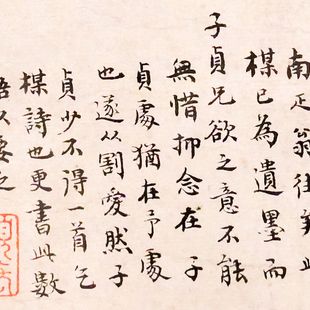 南疋翁往矣此
楳已為遺墨而
子貞兄欲之意不能
無惜抑念在子
貞處猶在予處
也遂以割愛然子
貞少不得一首乞
楳詩也更書此數
語以要之